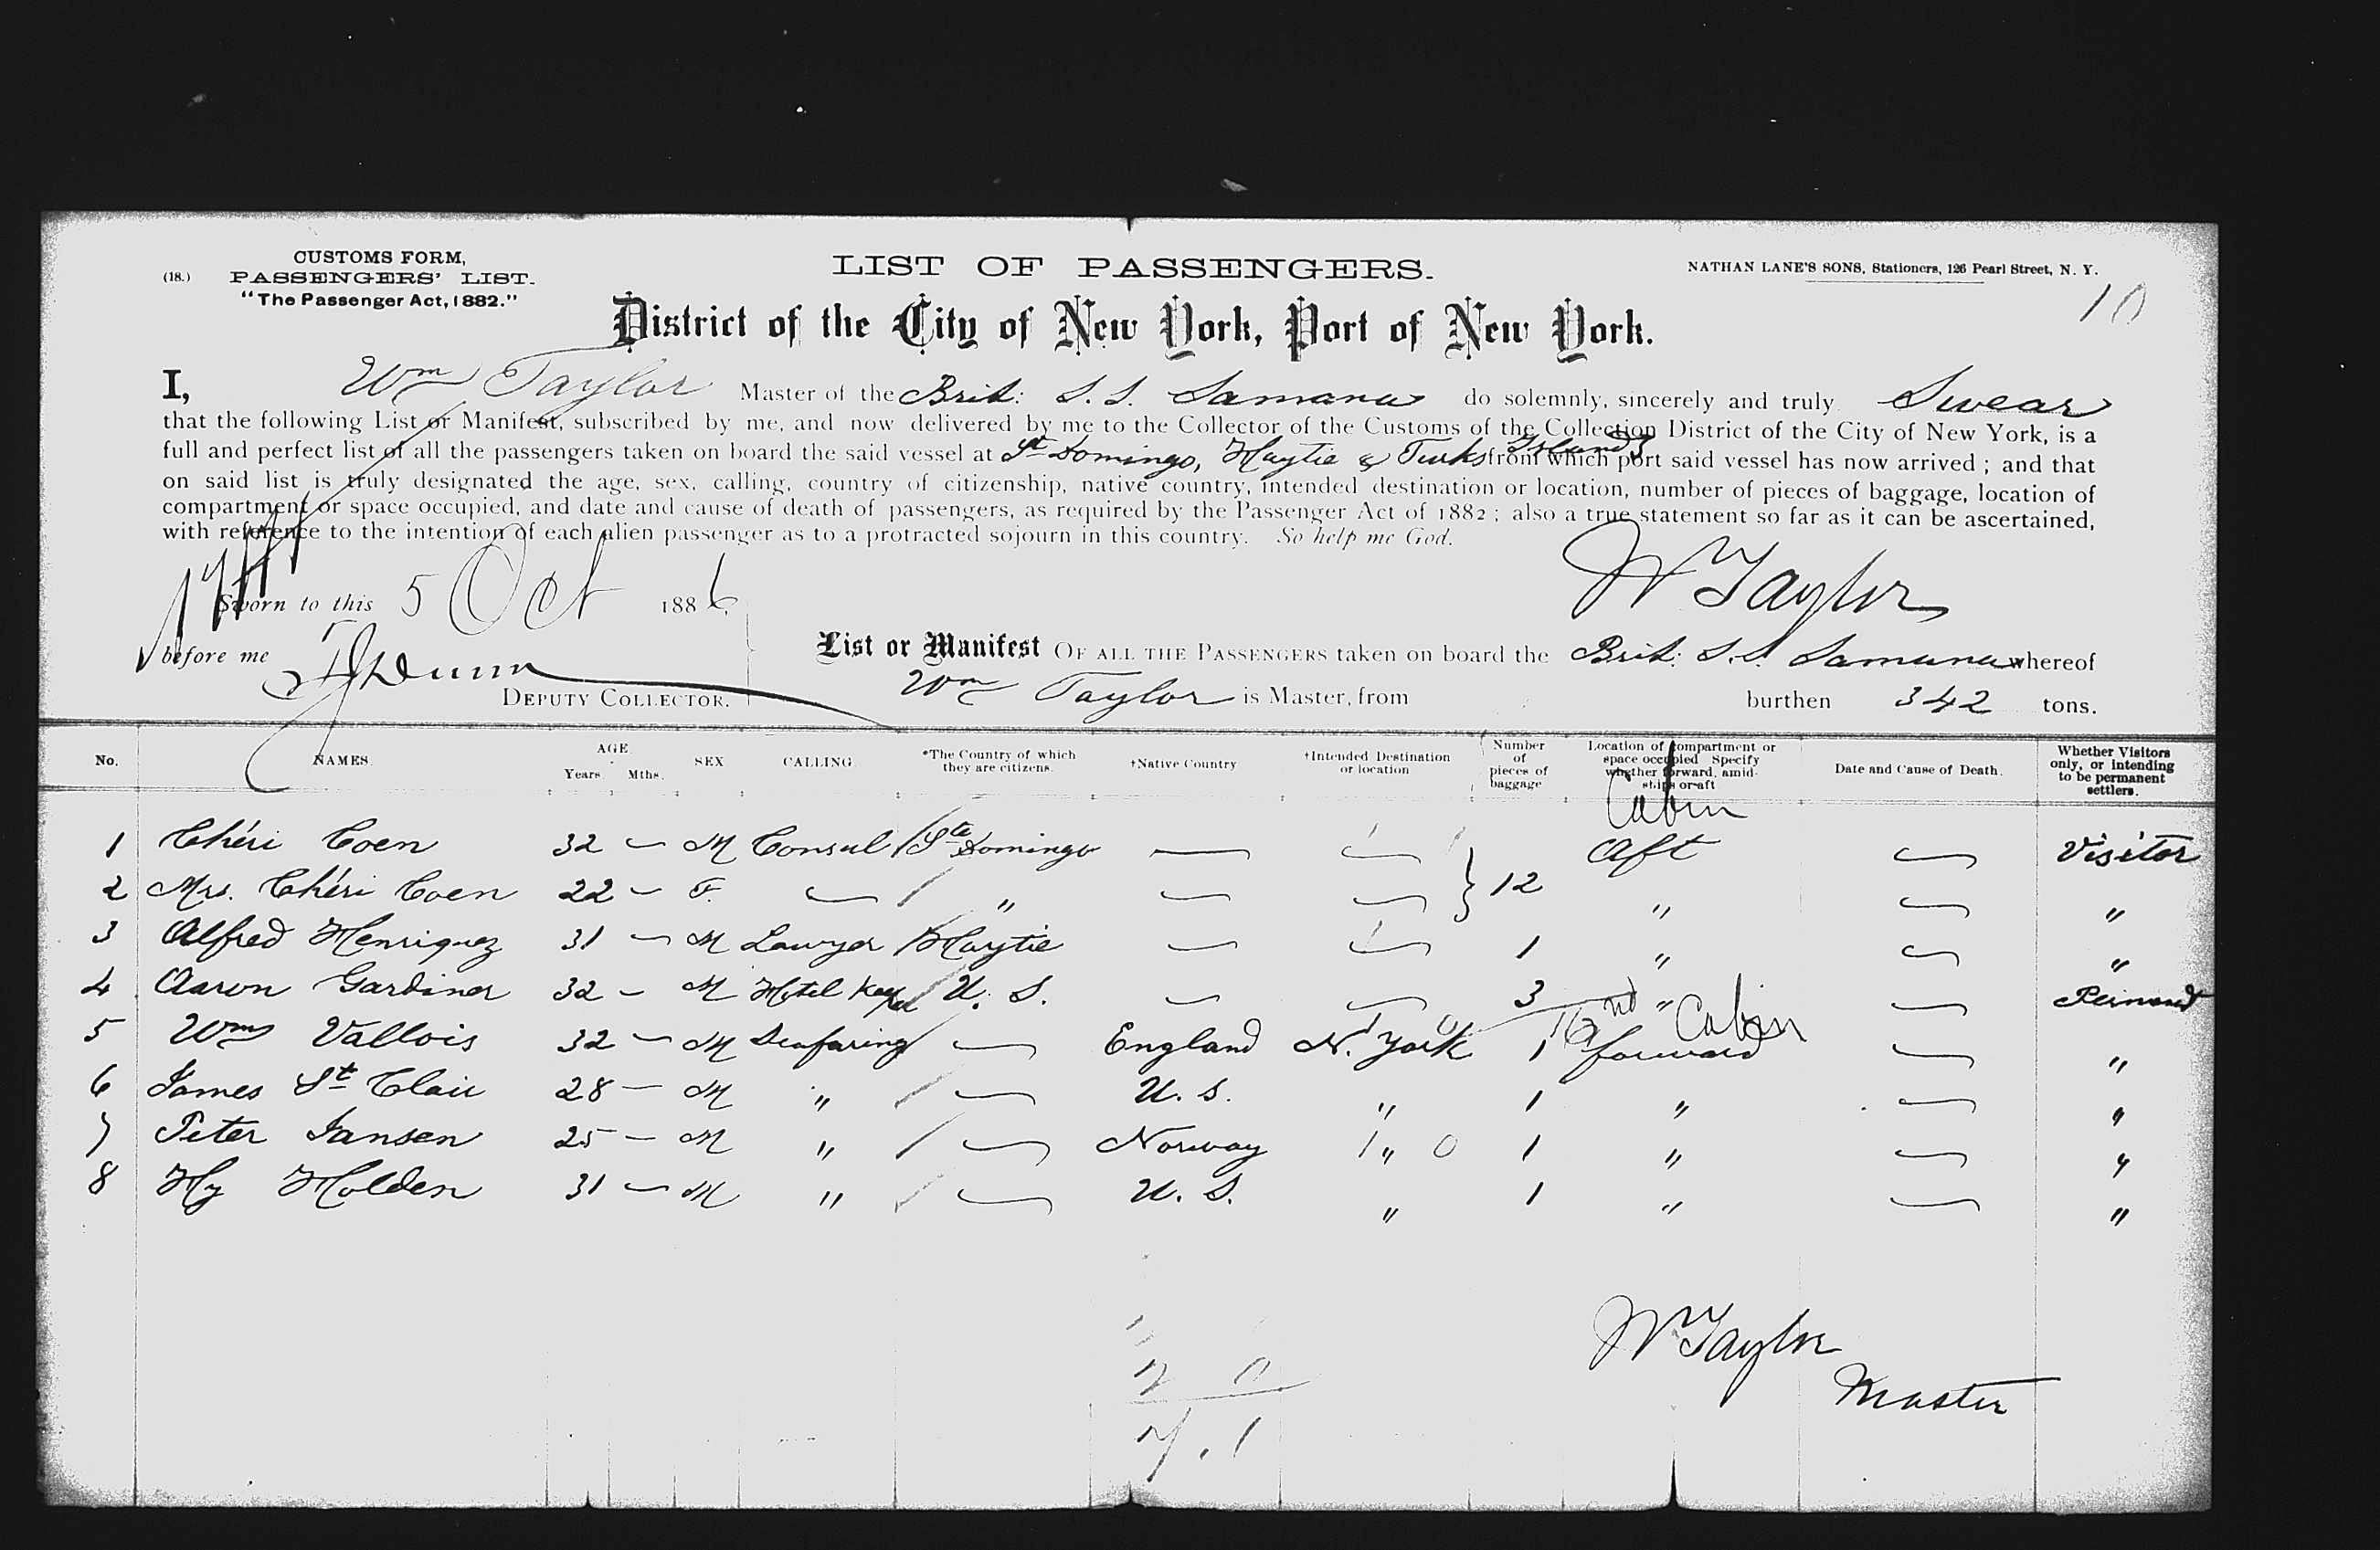 CUSTOMS FORM,
(18.) PASSENGERS' LIST.
"The Passenger Act, 1882."
LIST OF PASSENGERS.
NATHAN LANE'S SONS, Stationers, 126 Pearl Street, N. Y.
10
District of the City of New York, Port of New York.
I, Wm Taylor Master of the Brit: S.S. Samana do solemnly, sincerely and truly Swear
that the following List or Manifest, subscribed by me, and now delivered by me to the Collector of the Customs of the Collection District of the City of New York, is a
full and perfect list of all the passengers taken on board the said vessel at St Domingo, Haytie & Turks Islands from which port said vessel has now arrived; and that
on said list is truly designated the age, sex, calling, country of citizenship, native country, intended destination or location, number of pieces of baggage, location of
compartment or space occupied, and date and cause of death of passengers, as required by the Passenger Act of 1882; also a true statement so far as it can be ascertained,
with reference to the intention of each alien passenger as to a protracted sojourn in this country. So help me God.
Sworn to this 5 Oct 1886
W Taylor
before me
Dunn
DEPUTY COLLECTOR.
List or Manifest OF ALL THE PASSENGERS taken on board the Brit: S.S. Samana whereof
Wm Taylor is Master, from burthen 342 tons.
No. NAMES. AGE. Years. Mths. SEX CALLING. *The Country of which they are citizens. †Native Country †Intended Destination or location Number of pieces of baggage Location of compartment or space occupied Specify whether forward, amidships or aft Date and Cause of Death. Whether Visitors only, or intending to be permanent settlers.
Cabin
1 Chéri Coen 32 — M Consul Sto Domingo — — Aft — Visitor
2 Mrs. Chéri Coen 22 — F. — " — — } 12 " — "
3 Alfred Henriquez 31 — M Lawyer Haytie — — 1 " — "
4 Aaron Gardiner 32 — M Hotel Keeper U. S. — — 3 " —
2nd Cabin
5 Wm Vallois 32 — M Seafaring — England N. York 1 forward — "
6 James St Clair 28 — M " — U. S. " 1 " — "
7 Peter Jansen 25 — M " — Norway " 0 1 " — "
8 Hy Holden 31 — M " — U. S. " 1 " — "
W Taylor
Master
7. 1